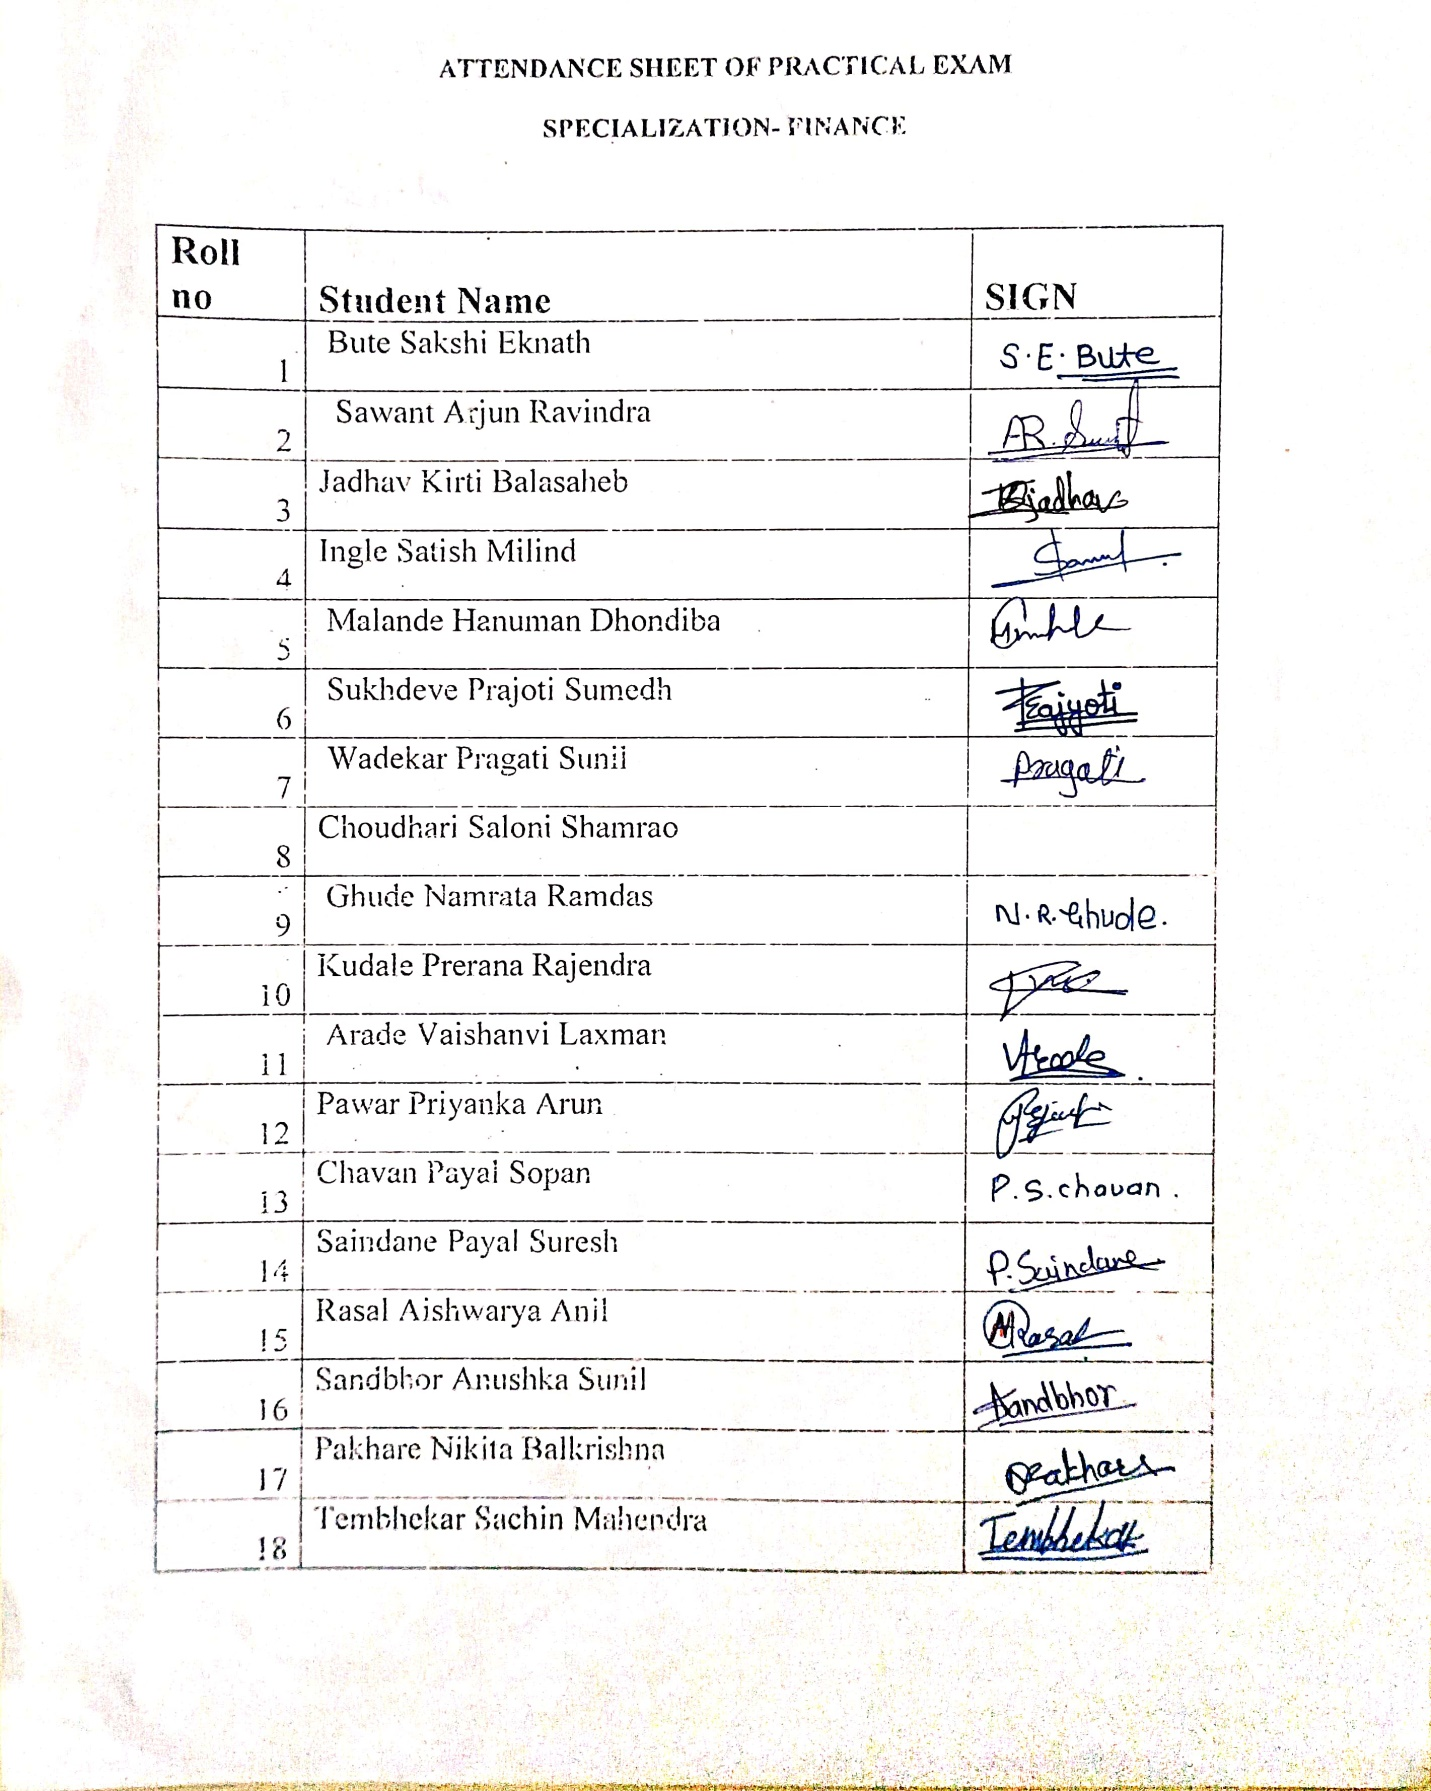 ATTENDANCE SHEET OF PRACTICAL EXAM
SPECIALIZATION- FINANCE
Roll no Student Name SIGN
1 Bute Sakshi Eknath S.E. Bute
2 Sawant Arjun Ravindra
3 Jadhav Kirti Balasaheb Jadhav
4 Ingle Satish Milind
5 Malande Hanuman Dhondiba
6 Sukhdeve Prajoti Sumedh Prajyoti
7 Wadekar Pragati Sunil Pragati
8 Choudhari Saloni Shamrao
9 Ghude Namrata Ramdas N.R. Ghude.
10 Kudale Prerana Rajendra
11 Arade Vaishanvi Laxman
12 Pawar Priyanka Arun
13 Chavan Payal Sopan P.S. chavan.
14 Saindane Payal Suresh P. Saindane
15 Rasal Aishwarya Anil Rasal
16 Sandbhor Anushka Sunil Sandbhor
17 Pakhare Nikita Balkrishna Pakhare
18 Tembhekar Sachin Mahendra Tembhekar